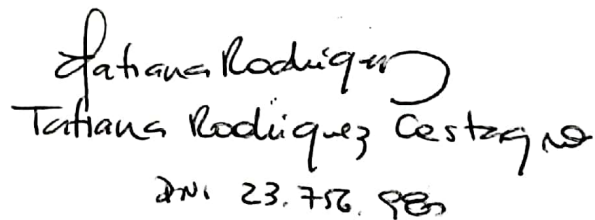 Tatiana Rodriguez
Tatiana Rodriguez Castagno
DNI 23.756.